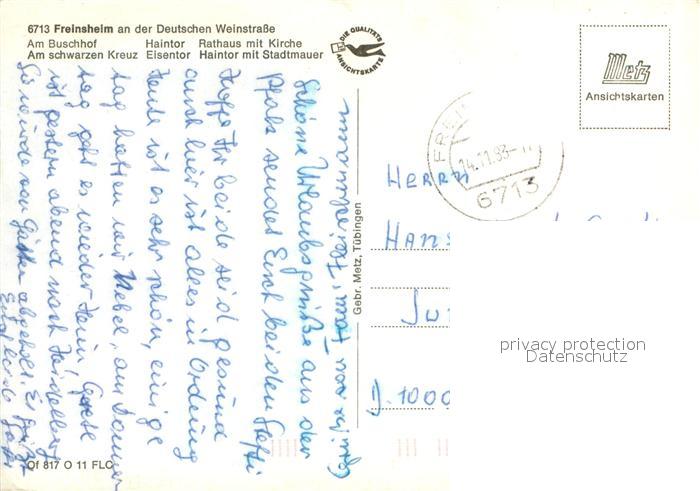 6713 Freinsheim an der Deutschen Weinstraße
Am Buschhof Haintor Rathaus mit Kirche
Am schwarzen Kreuz Eisentor Haintor mit Stadtmauer
DIE QUALITÄTS
ANSICHTSKARTE
Metz
Ansichtskarten
FREI
14.11.83-11
6713
Schöne Urlaubsgrüße aus der
Pfalz sendet Euch beiden Steffi
Hoffe Ihr beide seid gesund
auch hier ist alles in Ordnung
Heute ist es sehr schön, einige
Tag hatten wir Nebel, am Donners
tag geht es wieder heim,
ist gestern abend nach Heidelberg
Sie wurde von abgeholt. Es grüßt
Euch
Grüße von Fam.
Gebr. Metz, Tübingen
HERRN
HANS
D. 1000
privacy protection
Datenschutz
Of 817 O 11 FLC